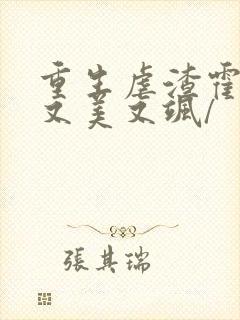 重生虐渣霍
又美又飒/
張其瑞